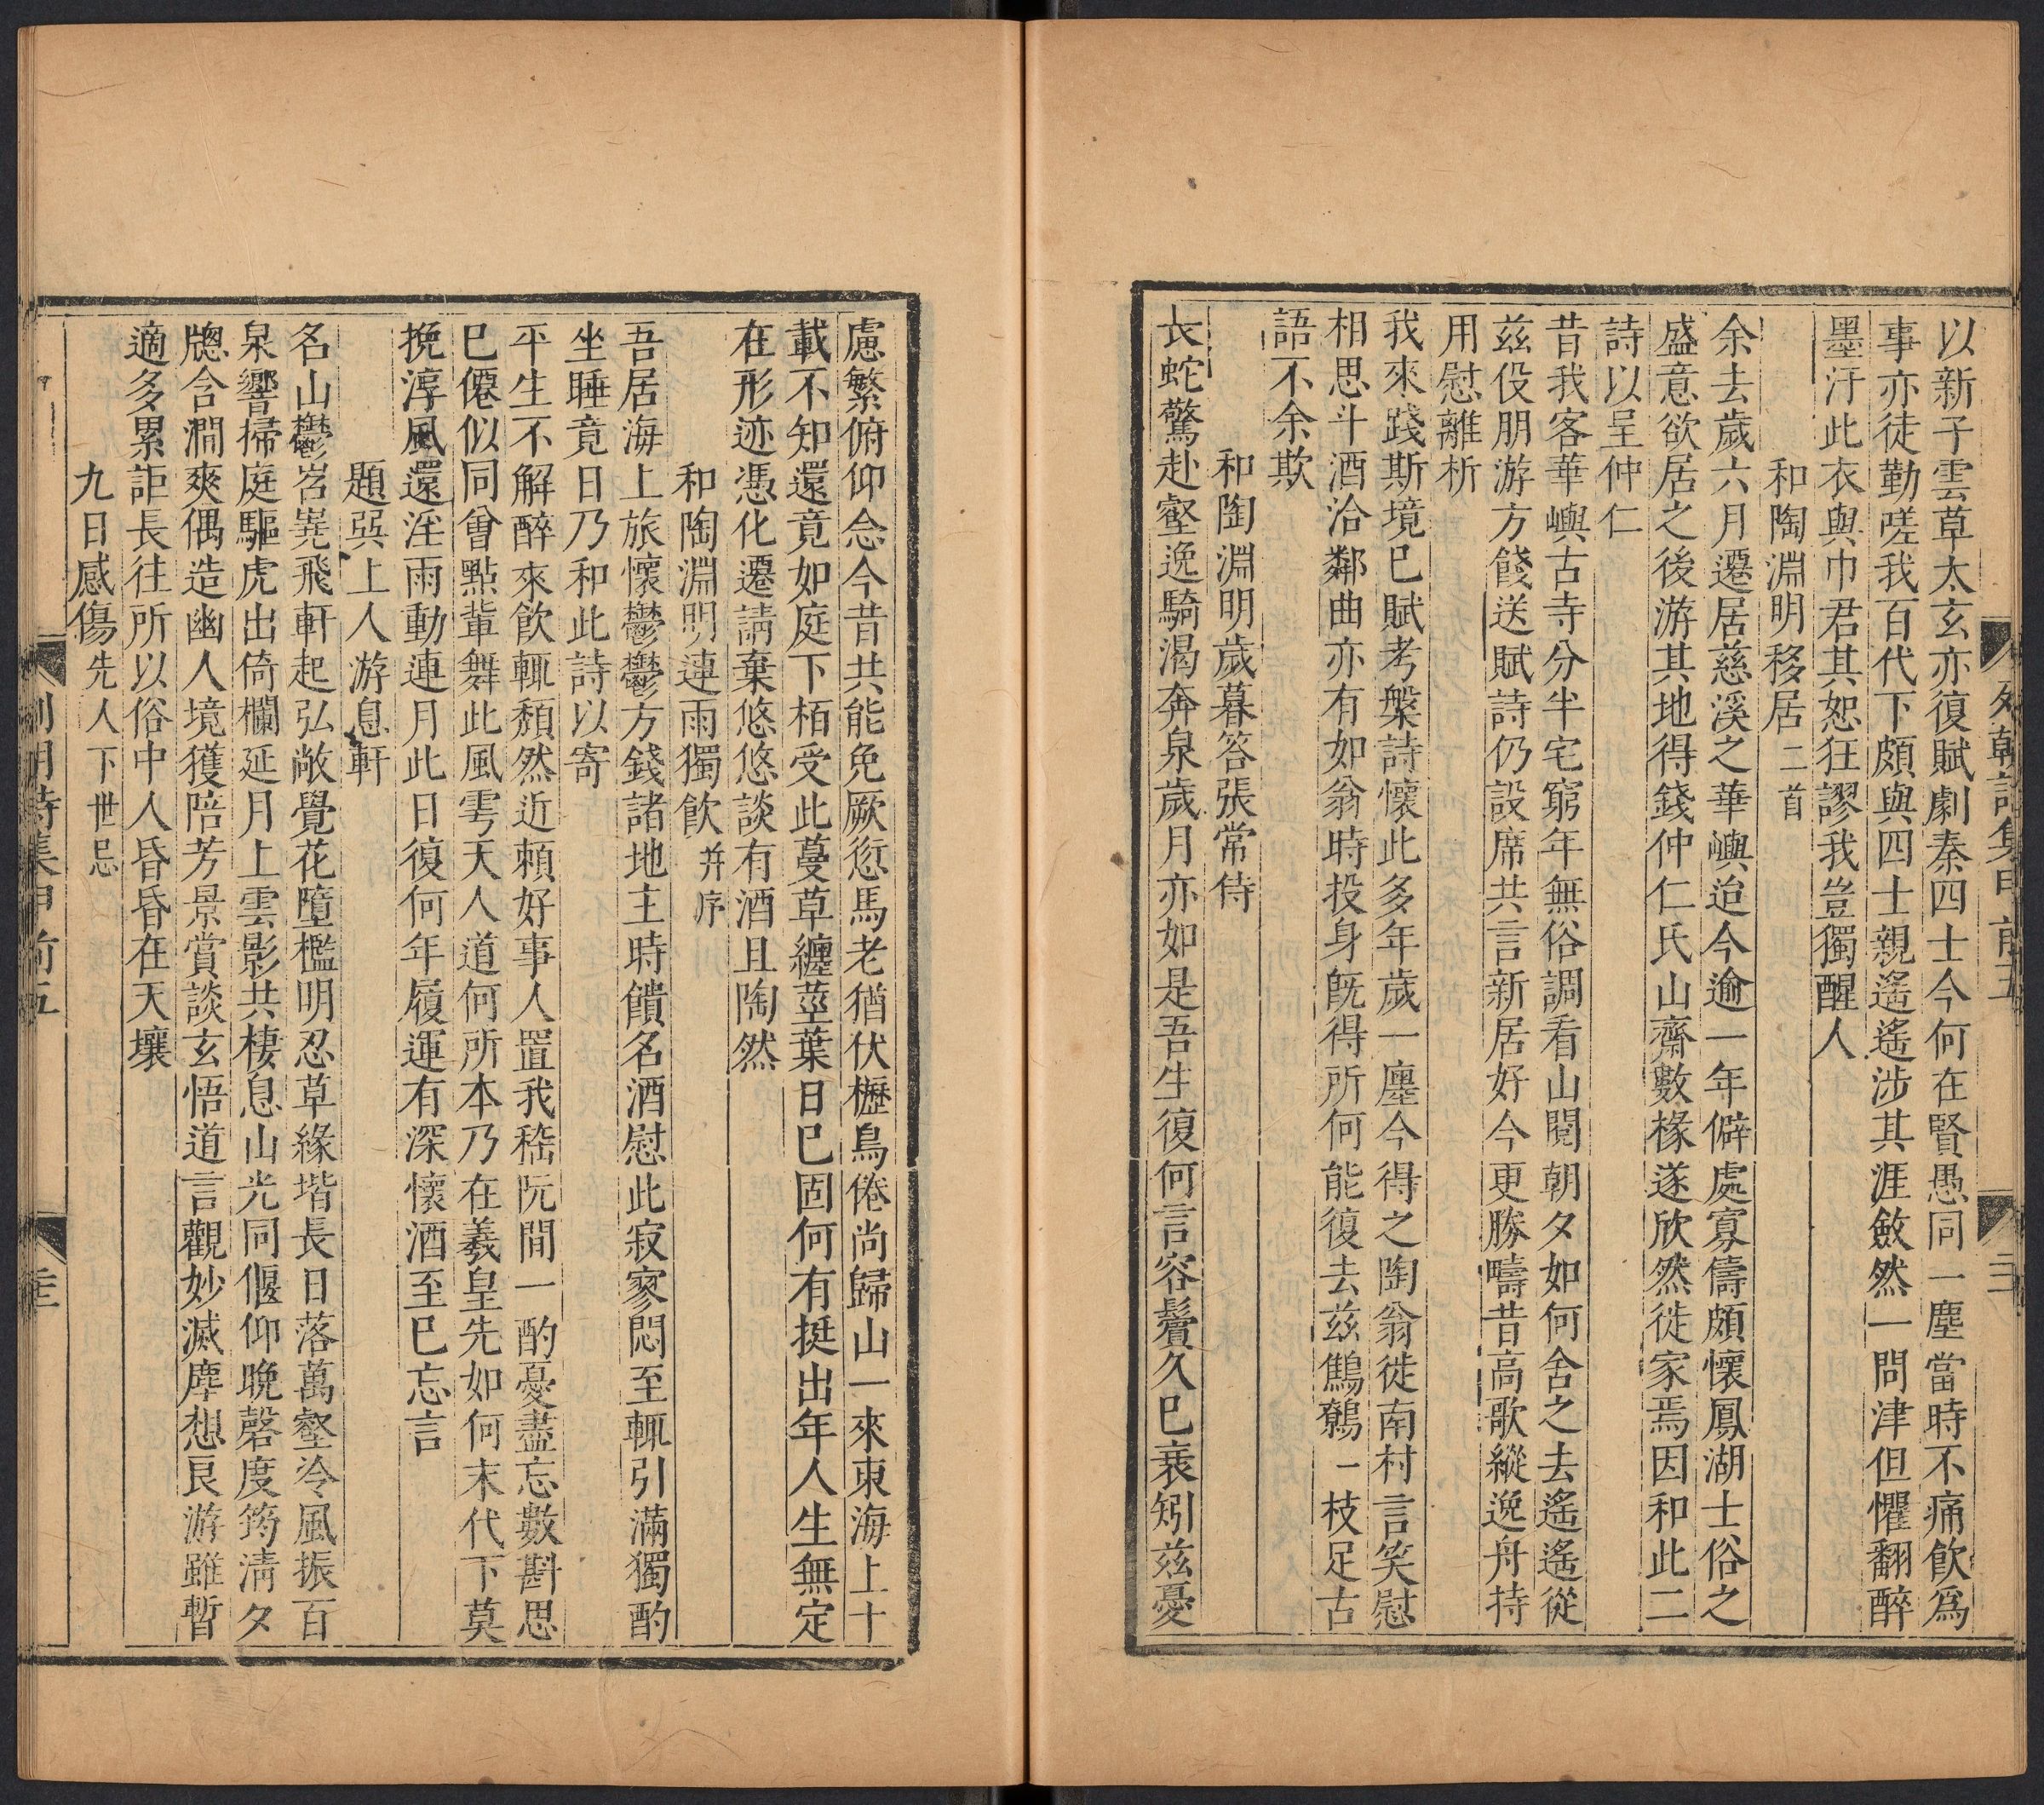 以新子雲草太玄亦復賦劇秦四士今何在賢愚同一塵當時不痛飲爲
事亦徒勤嗟我百代下頗與四士親遙遙涉其涯斂然一問津但懼翻醉
墨汙此衣與巾君其恕狂謬我豈獨醒人
和陶淵明移居二首
余去歲六月遷居慈溪之華嶼迨今逾一年僻處寡儔頗懷鳳湖士俗之
盛意欲居之後游其地得錢仲仁氏山齋數椽遂欣然徙家焉因和此二
詩以呈仲仁
昔我客華嶼古寺分半宅窮年無俗調看山閱朝夕如何舍之去遙遙從
茲役朋游方餞送賦詩仍設席共言新居好今更勝疇昔高歌縱逸舟持
用慰離析
我來踐斯境巳賦考槃詩懷此多年歲一廛今得之陶翁徙南村言笑慰
相思斗酒洽鄰曲亦有如翁時投身既得所何能復去茲鷦鷯一枝足古
語不余欺
和陶淵明歲暮答張常侍
長蛇驚赴壑逸騎渴奔泉歲月亦如是吾生復何言容鬢久巳衰矧茲憂
慮繁俯仰念今昔共能免厥愆馬老猶伏櫪鳥倦尚歸山一來東海上十
載不知還竟如庭下栢受此蔓草纏莖葉日巳固何有挺出年人生無定
在形迹憑化遷請棄悠悠談有酒且陶然
和陶淵明連雨獨飲并序
吾居海上旅懷鬱鬱方錢諸地主時饋名酒慰此寂寥悶至輒引滿獨酌
坐睡竟日乃和此詩以寄
平生不解醉來飲輒頹然近賴好事人置我嵇阮間一酌憂盡忘數斟思
巳僊似同曾點軰舞此風雩天人道何所本乃在羲皇先如何末代下莫
挽淳風還淫雨動連月此日復何年履運有深懷酒至巳忘言
題㢲上人游息軒
名山鬱岧嶤飛軒起弘敞覺花墮檻明忍草緣堦長日落萬壑泠風振百
泉響掃庭驅虎出倚欄延月上雲影共棲息山光同偃仰晩磬度筠淸夕
牕含澗爽偶造幽人境獲陪芳景賞談玄悟道言觀妙滅塵想良游雖暫
適多累詎長往所以俗中人昏昏在天壤
九日感傷先人下世忌
列朝詩集甲前五